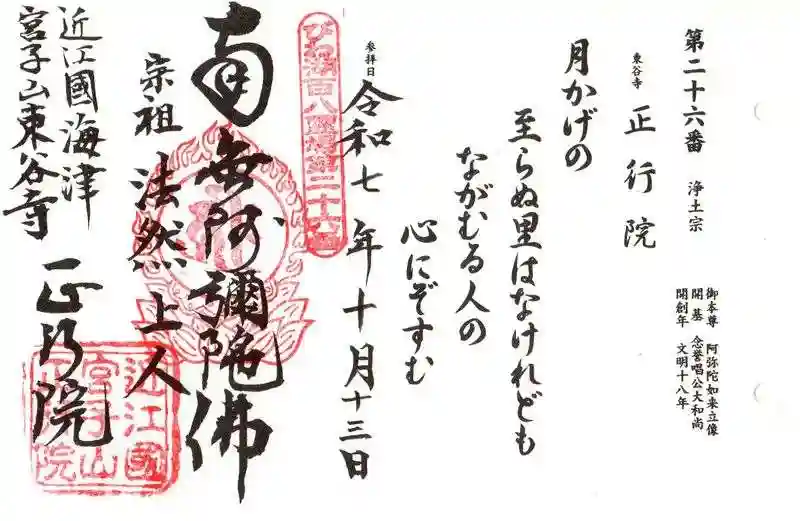 第二十六番 浄土宗
御本尊 阿弥陀如来立像
開基 念誉唱公大和尚
開創年 文明十八年
東谷寺 正行院
月かげの
至らぬ里はなけれども
ながむる人の
心にぞすむ
参拝日 令和七年十月十三日
びわ湖百八霊場第二十六番
南無阿彌陀佛
宗祖 法然上人
近江國海津
宮子山東谷寺
正行院
近江國
宮子山
正行院